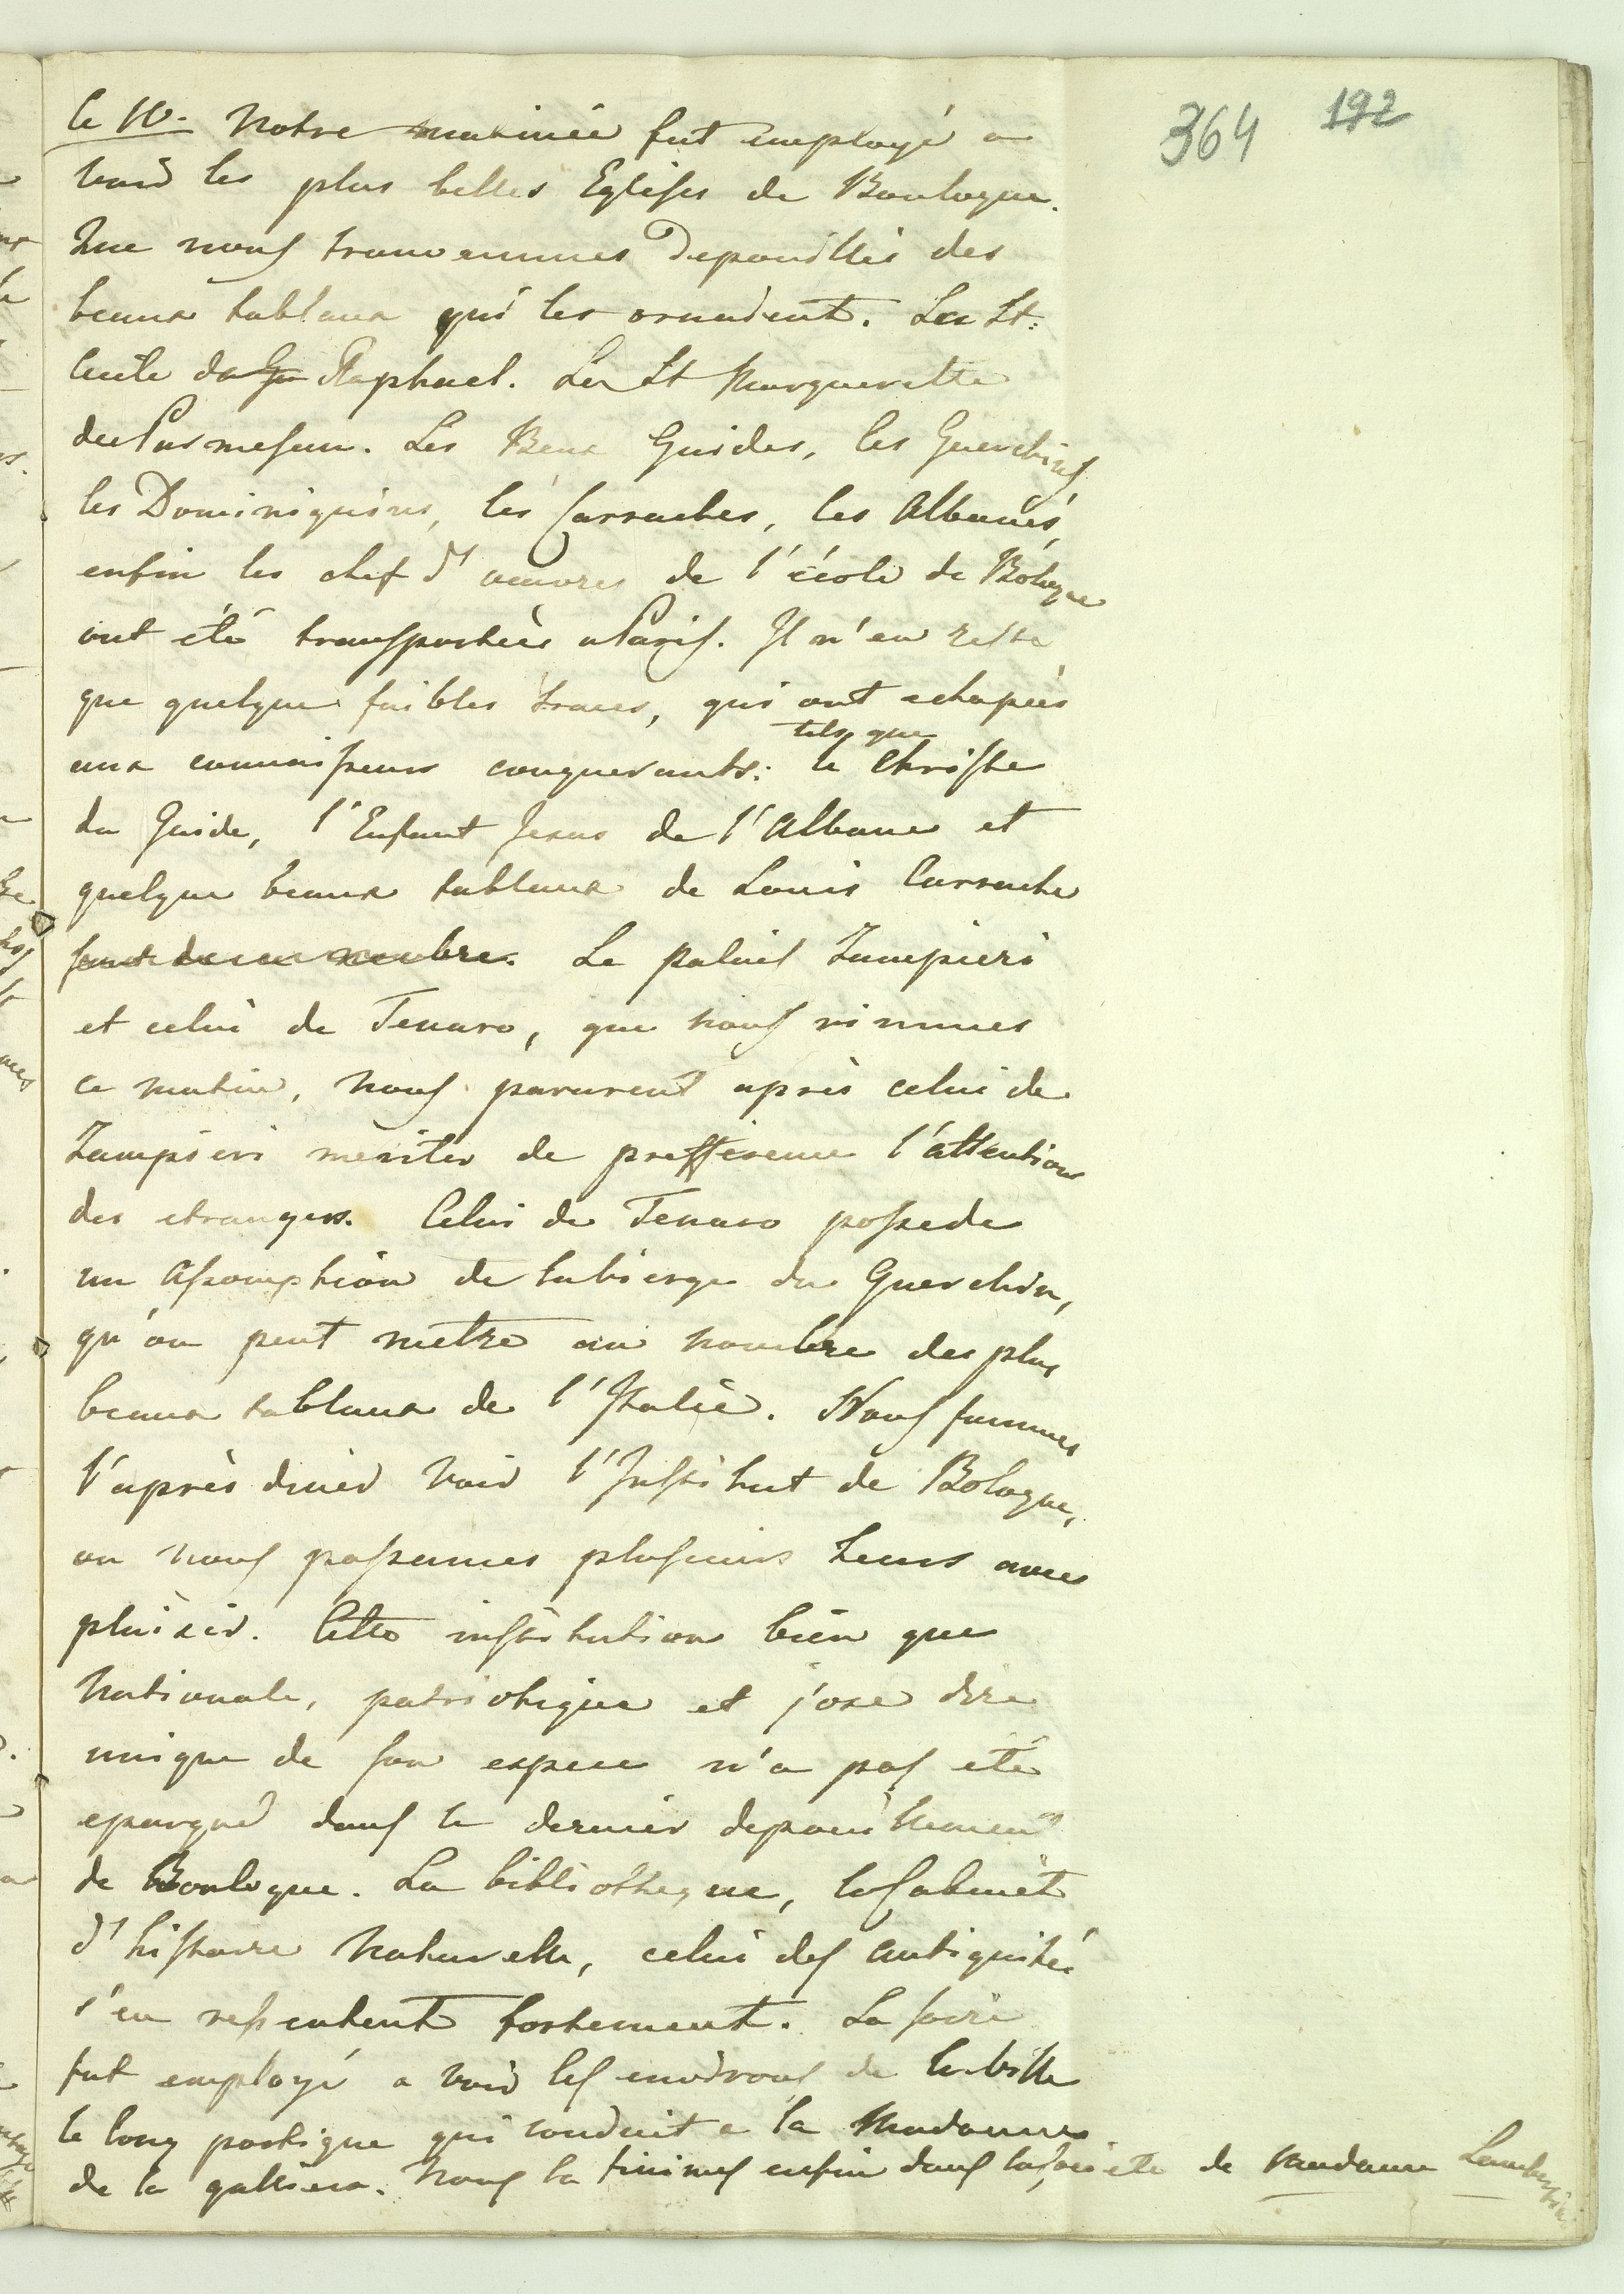 364 192
le 10. Notre matinée fut employé a
voir les plus belles Eglises de Boulogne.
Que nous trouvammes depouillés des
beaux tablaux qui les ornoient. La St.
Cecile da Raphael. La St Marguerette
du Parmesan. Les Beaux Guides, les Guerchins
les Dominiquins, les Carraches, les Albanes,
enfin les chef d'oeuvres de l'école de Bologne
ont été transportées a Paris. Il n'en reste
que quelque faibles traces, qui ont echapées
aux connaisseurs conquerants: tels que le Christe
du Guide, l'Enfant Jesus de l'Albane et
quelque beaux tablaux de Louis Carrache
sont de ce nombre. Le palais Zampieri
et celui de Tenaro, que nous vimmes
ce matin, nous parurent après celui de
Zampieri meriter de prefference l'attention
des etrangers. Celui de Tenaro possede
un Assomption de la Vierge du Guerchin,
qu'on peut mettre au nombre des plus
beaux tablaux de l'Italie. Nous fummes
l'après diner voir l'Institut de Bologne,
ou nous passames plusieurs heurs avec
plaisir. Cette institution bien que
Nationale, patriotique et j'ose dire
unique de son espece n'a pas été
epargné dans le dernier depouillement
de Boulogne. La bibliotheque, le Cabinet
d'histoire Naturelle, celui des antiquités
s'en ressentent fortement. La soire
fut employé a voir les environs de la ville
le long portique qui conduit a la Madonne
de la galliera. Nous la finimes enfin dans la societe de Madame Lambertini